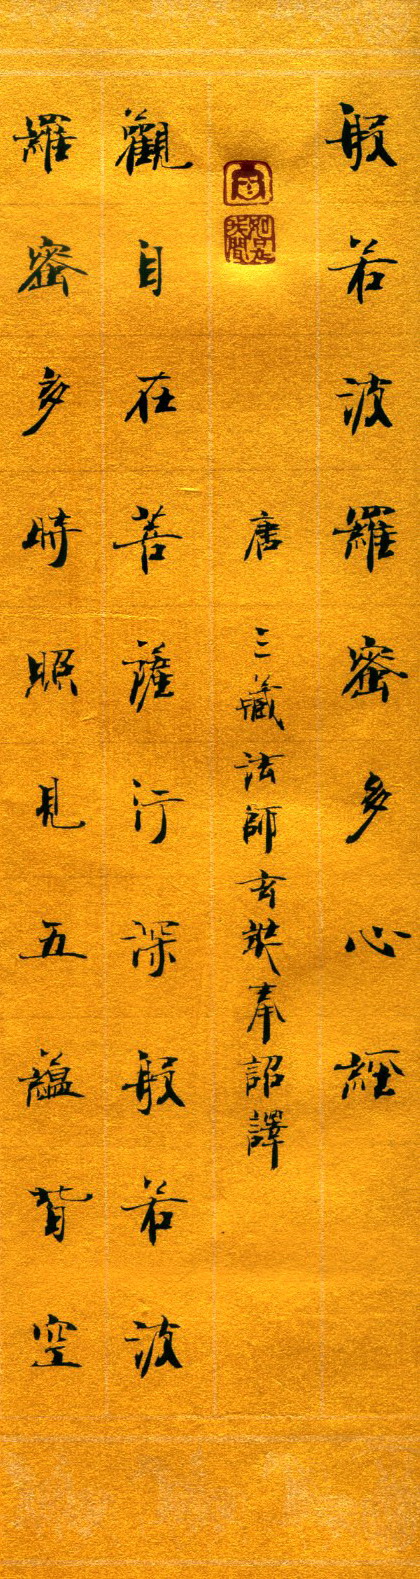 般若波羅蜜多心經
唐 三藏法師玄奘奉詔譯
觀自在菩薩行深般若波
羅蜜多時照見五蘊皆空